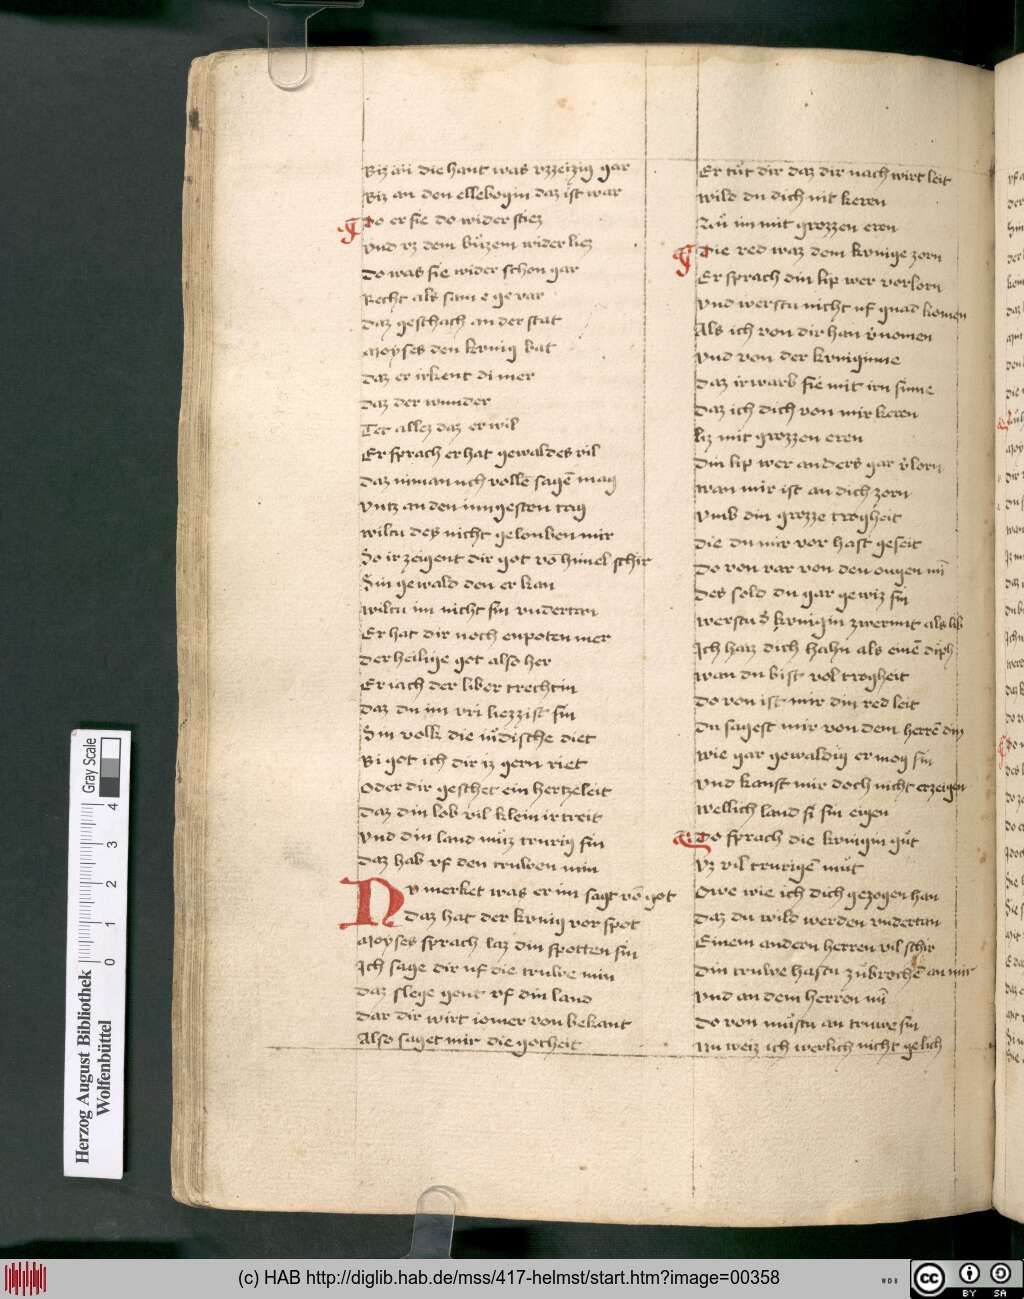 Biz an die hant was vzzeizig gar
Biz an den ellebogin daz ist war
Do er sie do wider stiez
vnd vz dem bůzem wider liez
Do was sie wider schon gar
Recht als sam e ge var
Daz geschach an der stat
Moyses den kvnig bat
Daz er irkent di mer
Daz der wunder
Tet allez daz er wil
Er sprach er hat gewaldes vil
Daz niman uch volle sagē mag
vntz an den iungesten tag
wiltu des nicht gelouben mir
So ir zeigent dir got vō himel schir
Sin gewald den er kan
wiltu im nicht sin vndertan
Er hat dir noch enpoten mer
Der heilige got also her
Er iach der liber trechtin
Daz du im vri liezzist sin
Sin volk die iůdische diet
Bi got ich dir iz gern riet
Oder dir geschet ein hertzeleit
Daz din lob vil klein ir treit
vnd din land můz trurig sin
Daz hab vf den truwen min
Nv merket was er im sagt vō got
Daz hat der kvnig vor spot
Moyses sprach laz din spotten sin
Ich sage dir uf die truwe min
Daz slege gent vf din land
Dar dir wirt iomer von bekant
Also saget mir die gotheit
Er tůt dir daz dir nach wirt leit
wild du dich nit keren
Tů im mit grozzen eren
Die red waz dem kvnige zorn
Er sprach din lip wer vorlorn
vnd werstu nicht uf gnad komen
Als ich von dir han v'nomen
vnd von der kvniginne
Daz irwarb sie mit irn sinne
Daz ich dich von mir keren
liz mit grozzen eren
Din lip wer anders gar v'lorn
wan mir ist an dich zorn
vmb din grozze trogheit
Die du mir vor hast geseit
Do von var von den ougen mī
Des sold du gar gewiz sin
werstu d' kvnigin zwernit als lib
Ich haiz dich hahn als einē dip
wan du bist vol trogheit
Do von ist mir din red leit
Du sagest mir von dem herrē din
wie gar gewaldig er mog sin
vnd kanst mir doch nicht erzeigen
wellich land si sin eigen
Do sprach die kvnigin gůt
vz vil trurigē můt
Owe wie ich dich gezogen han
Daz du wild werden vndertan
Einem andern herren vil schir
Din truwe hastu zůbrochē an mir
vnd an dem herren mī
Do von můstu an truwe sin
Nu weiz ich werlich nicht gelich
Herzog August Bibliothek
Wolfenbüttel
0 1 2 3 4
Gray Scale
(c) HAB http://diglib.hab.de/mss/417-helmst/start.htm?image=00358
WDB
cc
BY SA